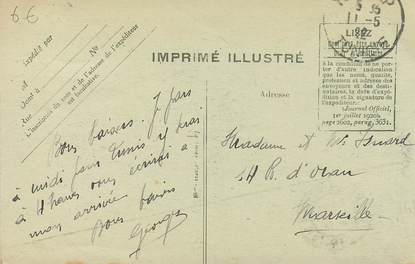 6 €
Expédié par
M
Rue
N°
L'inscription du nom et de l'adresse de l'expéditeur
est facultative.
IMPRIMÉ ILLUSTRÉ
Adresse
LISEZ
à la condition de ne por-
ter d'autre indication
que les nom, qualité,
profession et adresse des
envoyeurs et des desti-
nataires, la date d'expé-
dition et la signature de
l'expéditeur.
Journal Officiel,
1er juillet 1920,
page 3602, parag. 3631.
Bons baisers. Je pars
à midi pour Tunis y serai
à 4 heures vous écrirai à
mon arrivée
Bons baisers
Georges
Madame et Mr
14 R. d'Oran
Marseille